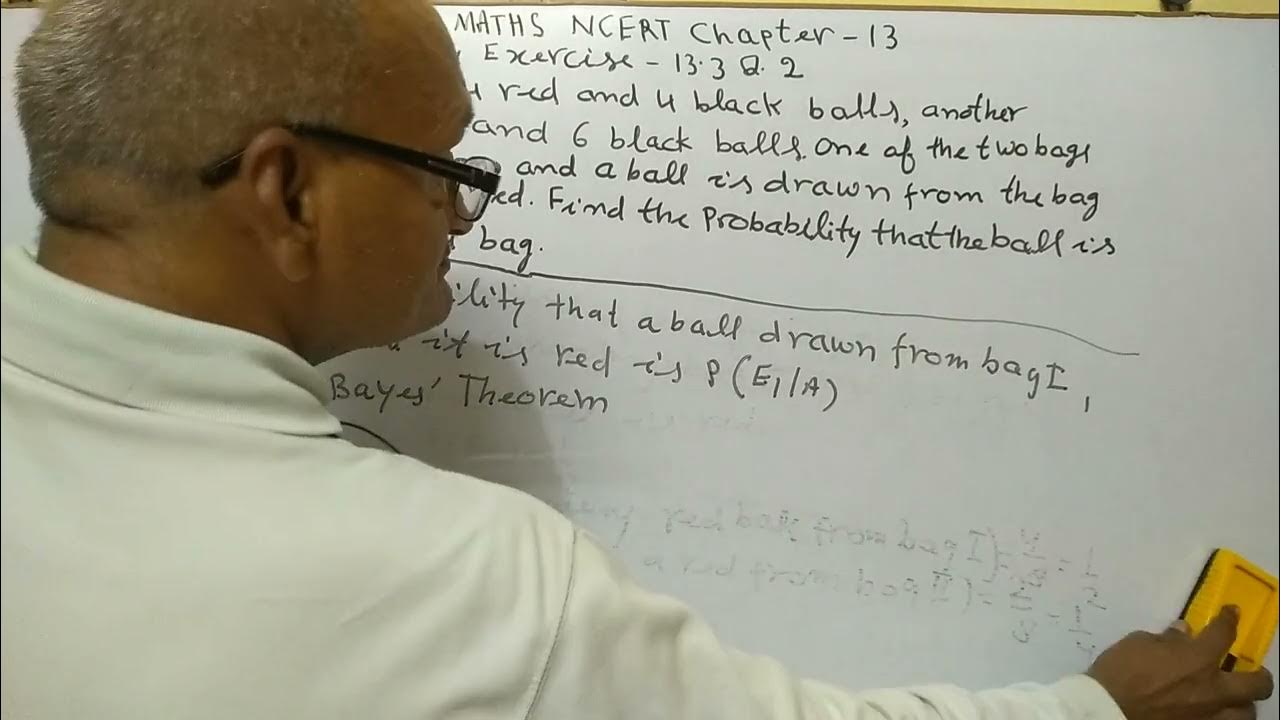 MATHS NCERT Chapter - 13
Exercise - 13.3 Q. 2
red and 4 black balls, another
and 6 black balls. One of the two bags
and a ball is drawn from the bag
Find the Probability that the ball is
bag.
that a ball drawn from bag I,
it is red is P(E₁/A)
Bayes' Theorem
red ball from bag I) = 4/8 = 1/2
a red from bag II) = 2/8 = 1/4